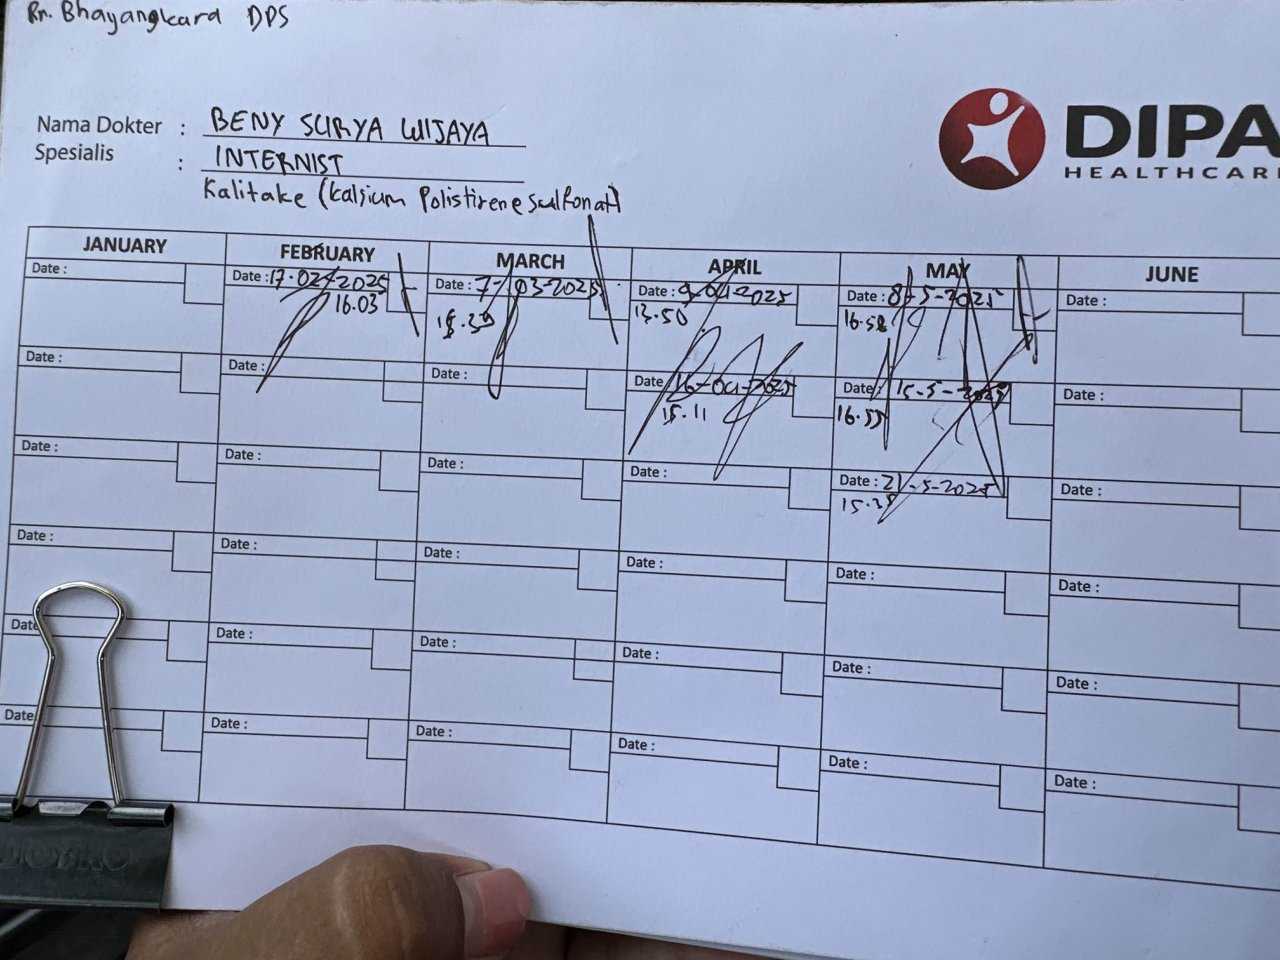 Rn. Bhayangkara DPS
DIPA
HEALTHCAR
Nama Dokter : BENY SURYA WIJAYA
Spesialis : INTERNIST
Kalitake (Kalsium Polistirene sulfonat)
JANUARY FEBRUARY MARCH APRIL MAY JUNE
Date : Date : 17-02-2025 Date : 7-03-2025 Date : 9-04-2025 Date : 8-5-2025 Date :
16.03 13.50 16.58
Date : Date : Date : Date 16-04-2025 Date : 15-5-2025 Date :
15.11 16.55
Date : Date : Date : Date : Date : 21-5-2025 Date :
Date : Date : Date : Date : Date : Date :
Dat Date : Date : Date : Date : Date :
Date Date : Date : Date : Date : Date :